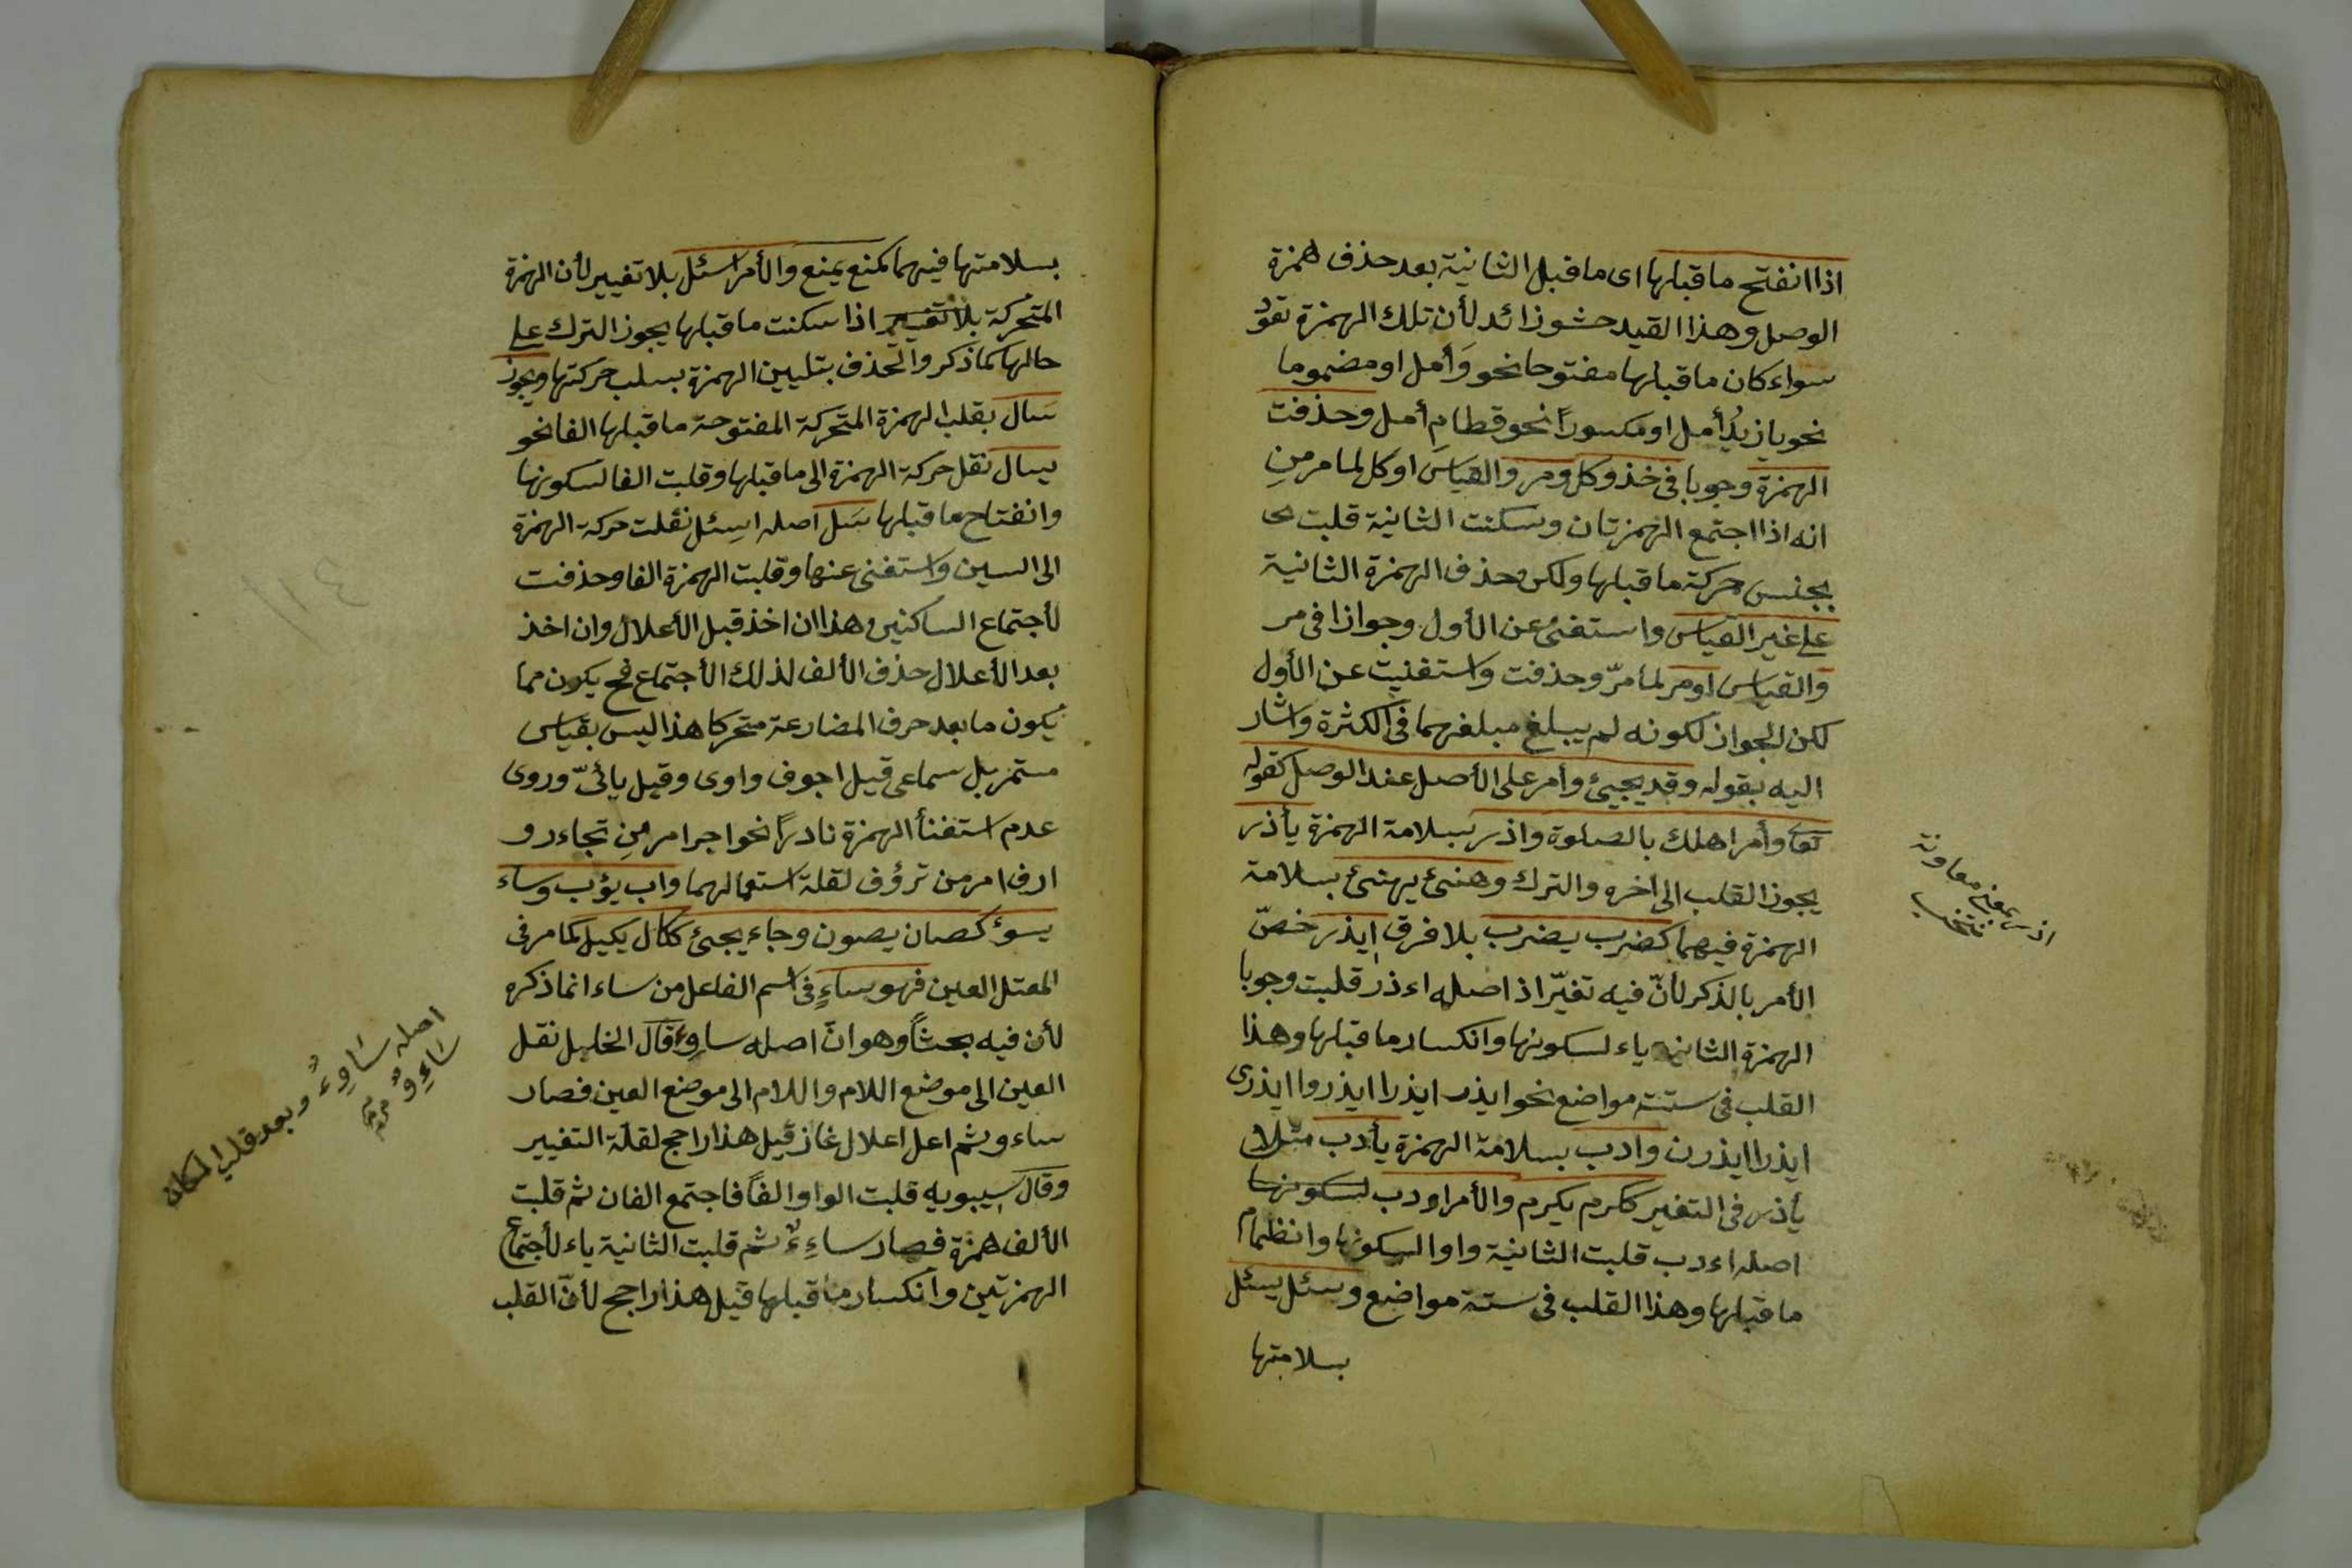 اذا انفتح ما قبلها اى ما قبل الثانية بعد حذف همزة
الوصل وهذا القيد حشو زائد لأن تلك الهمزة تعود
سواء كان ما قبلها مفتوحا نحو وَأمل او مضموما
نحو يا زيدُ أمل او مكسوراً نحو قطامِ أمل وحذفت
الهمزة وجوبا فى خذ وكل ومر والقياس اوكل لما مر من
انه اذا اجتمع الهمزتان وسكنت الثانية قلبت
بجنس حركة ما قبلها ولكن حذف الهمزة الثانية
على غير القياس واستغنى عن الأول وجوازا فى مر
والقياس اومر لما مرّ وحذفت واستغنيت عن الأول
لكن الجواز لكونه لم يبلغ مبلغهما فى الكثرة واشار
اليه بقوله وقد يجيئ وأمر على الأصل عند الوصل كقوله
تعا وأمر اهلك بالصلوة واذر بسلامة الهمزة يأذر
يجوز القلب الى اخره والترك وهنئ يهنئ بسلامة
الهمزة فيهما كضرب يضرب بلا فرق ايذر خصّ
الأمر بالذكر لأنّ فيه تغيّر اذ اصله اءذر قلبت وجوبا
الهمزة الثانية ياء لسكونها وانكسار ما قبلها وهذا
القلب فى ستة مواضع نحو ايذر ايذرا ايذروا ايذرى
ايذرا ايذرن وادب بسلامة الهمزة يأدب مثلا
يأذر فى التغير ككرم يكرم والأمر اودب لسكونها
اصله اءدب قلبت الثانية واوا لسكونها وانظمام
ما قبلها وهذا القلب فى ستة مواضع وسئل يسئل
بسلامتها
اذر بمعنى معاونة
بسلامتها فيهما كمنع يمنع والأمر اسئل بلا تغيير لأن الهمزة
المتحركة بلا تغيير اذا سكنت ما قبلها يجوز الترك على
حالها كما ذكر والحذف بتليين الهمزة بسلب حركتها ويجوز
سَال بقلب الهمزة المتحركة المفتوحة ما قبلها الفا نحو
يسال نقل حركة الهمزة الى ما قبلها وقلبت الفا لسكونها
وانفتاح ما قبلها سَل اصله اسئل نقلت حركة الهمزة
الى السين واستغنى عنها وقلبت الهمزة الفا وحذفت
لأجتماع الساكنين وهذا ان اخذ قبل الأعلال وان اخذ
بعد الأعلال حذف الألف لذلك الأجتماع فح يكون مما
يكون ما بعد حرف المضارعة متحركا هذا ليس بقياس
مستمر بل سماعى قيل اجوف واوى وقيل يائىّ وروى
عدم استغنأ الهمزة نادراً نحو اجر امر مِن تجاءرو
ارف امر من ترؤف لقلة استعمالهما واب يؤب وساء
يسوء كصان يصون وجاء يجئ ككال يكيل كما مر فى
المعتل العين فهو ساءٍ فى اسم الفاعل من ساء انما ذكره
لأن فيه بحثاً وهو انّ اصله ساوِء قال الخليل نقل
العين الى موضع اللام واللام الى موضع العين فصار
ساءو ثم اعل اعلال غاز قيل هذا راجح لقلة التغيير
وقال سيبويه قلبت الواو الفاً فاجتمع الفان ثم قلبت
الألف همزة فصار ساءِءٌ ثم قلبت الثانية ياء لأجتماع
الهمزتين وانكسار ما قبلها قيل هذا راجح لأنّ القلب
اصله سَاوِءٌ وبعد قلب المكان
سَاءِوٌ